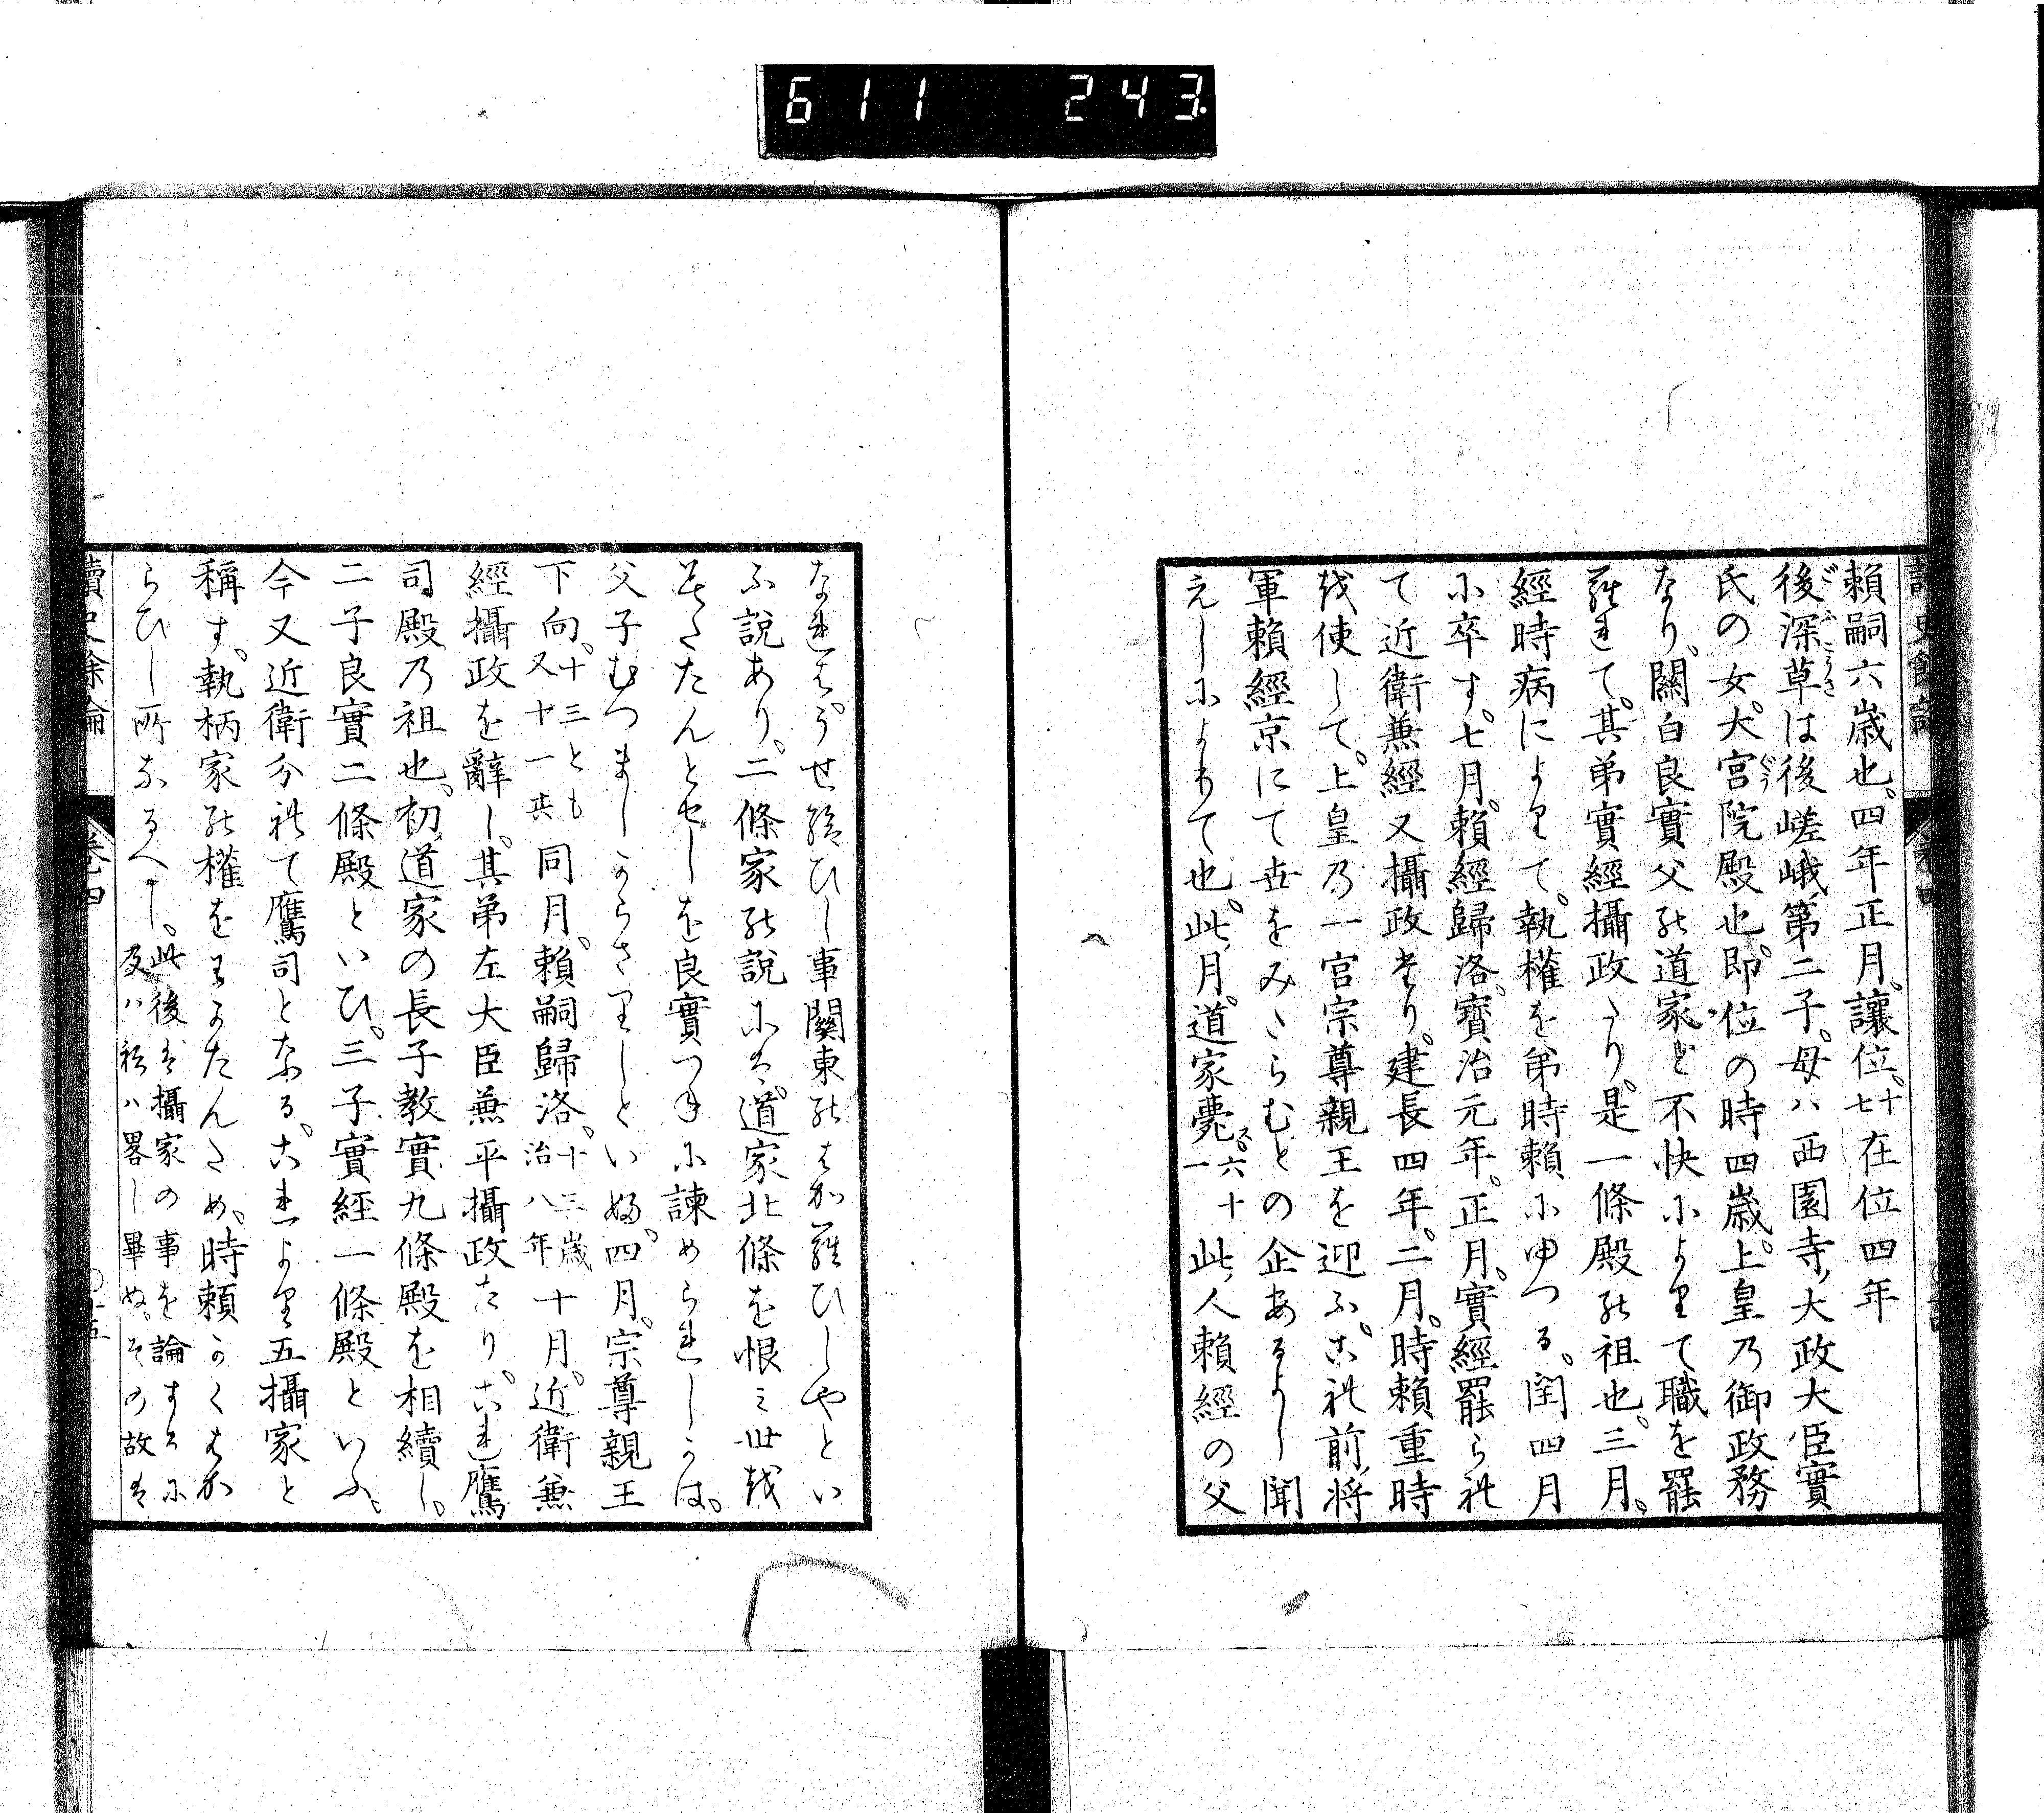 611 243
賴嗣六歳也。四年正月。讓位。十七在位四年
後深草は後嵯峨第二子。母ハ西園寺大政大臣實
氏の女。大宮院殿也。即位の時四歳。上皇乃御政務
なり。關白良實父の道家と不快によりて職を罷
られて。其弟實經攝政たり。是一條殿の祖也。三月。
經時病によりて。執權を弟時賴にゆつる。閏四月
に卒す。七月。賴經歸洛。寶治元年。正月。實經罷られ
て近衛兼經又攝政たり。建長四年。二月。時賴重時
を使して。上皇乃一宮宗尊親王を迎ふ。これ前將
軍賴經京にて世をみたらむとの企あるよし聞
えしによりて也。此月。道家薨六十一此人賴經の父
なれはうせ給ひし事關東のはからひしやとい
ふ説あり。二條家の説には。道家北條を恨み世を
みたたんとせしを良實つねに諫められしかは。
父子むつましからさりしといふ。四月。宗尊親王
下向。十三とも又十一其同月。賴嗣歸洛。十三歳治八年十月。近衛兼
經攝政を辭し。其弟左大臣兼平攝政たり。これ鷹
司殿乃祖也。初道家の長子教實九條殿を相續し。
二子良實二條殿といひ。三子實經一條殿といふ。
今又近衛分れて鷹司となる。これより五攝家と
稱す。執柄家の權をわかたんため。時賴かくはか
らひし所なるへし。此後は攝家の事を論するに及ハねハ畧し畢ぬ。その故は
讀史餘論 卷四 〇十五